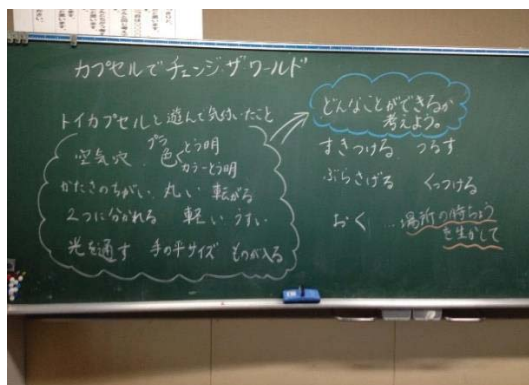 カプセルでチェンジ・ザ・ワールド
トイカプセルと遊んで気付いたこと
空気穴 プラ 色 とう明
カラーとう明
かたさのちがい 丸い 転がる
2つに分かれる 軽い うすい
光を通す 手の平サイズ ものが入る
どんなことができるか
考えよう。
すきつける つるす
ぶらさげる くっつける
おく …場所の特ちょう
を生かして